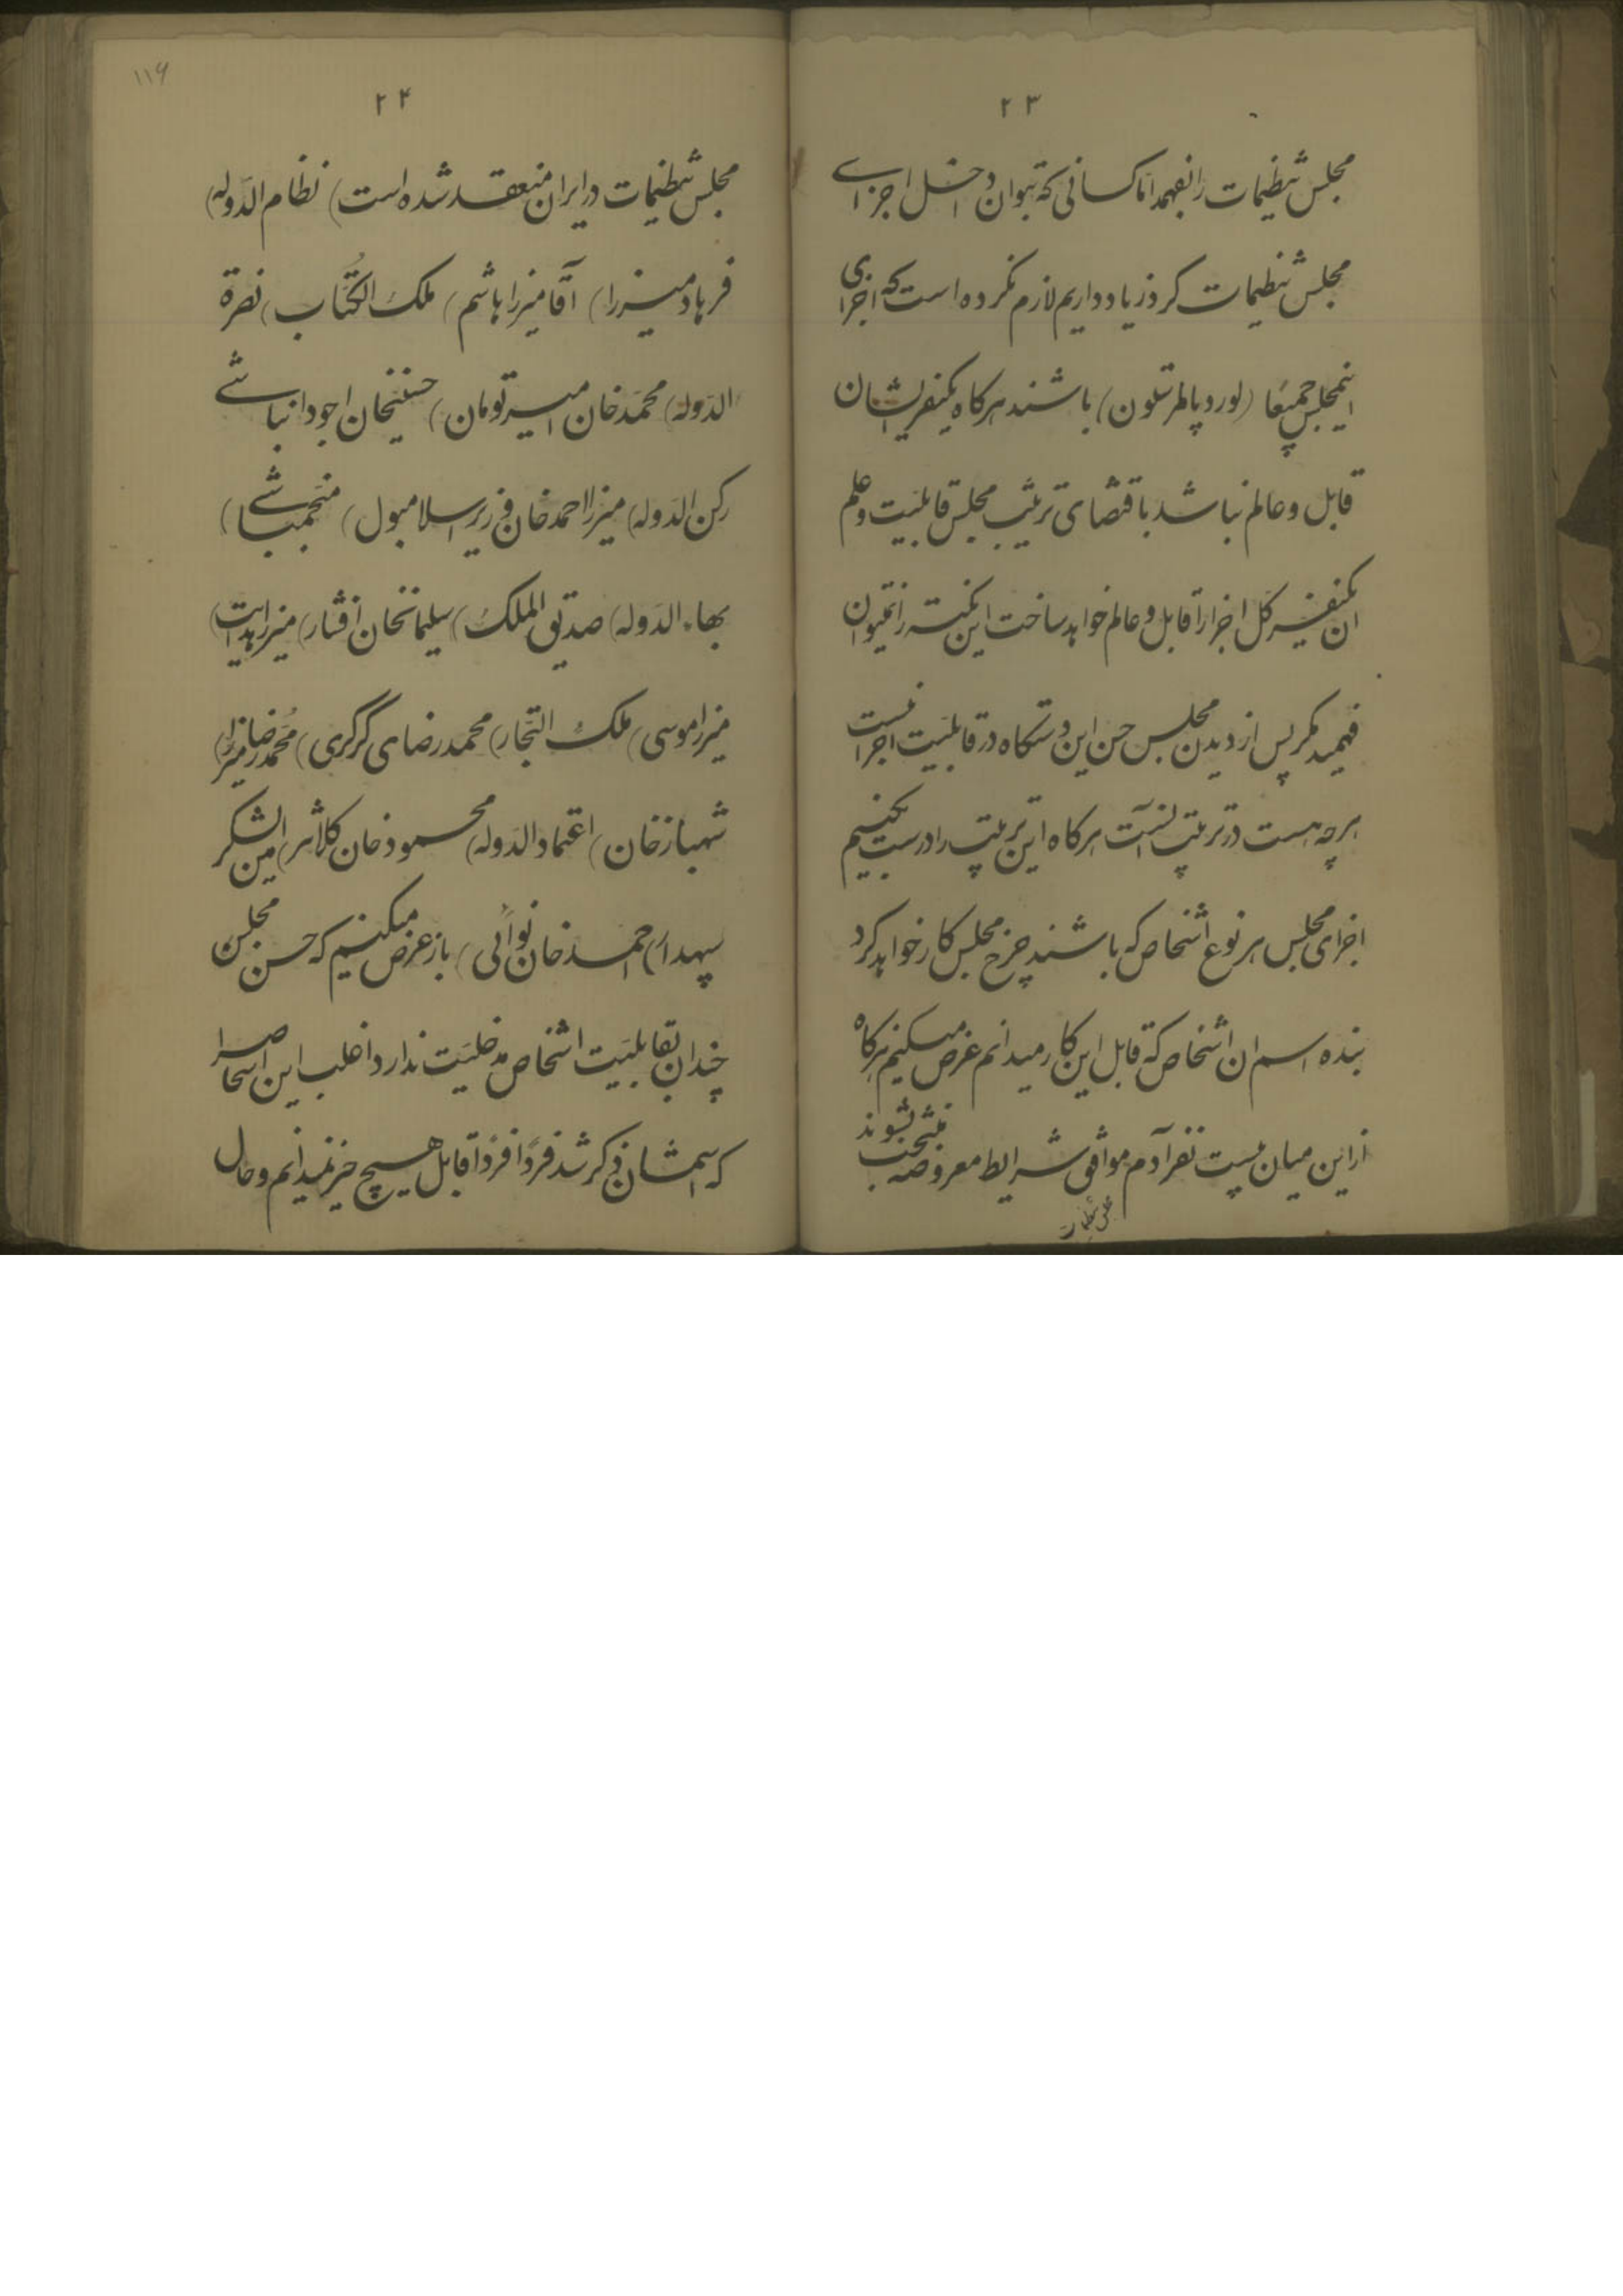 ۲۳
مجلس تنظیمات را بفهمد اما کسانی که بتوان داخل اجزای
مجلس تنظیمات کرد زیاد داریم لازم نکرده است که اجزای
اینمجلس جمیعا (لورد پالمرستون) باشند هرکاه یکنفر ایشان
قابل و عالم نباشد باقتضای ترتیب مجلس قابلیت و علم
ان یکنفر کل اجزا را قابل و عالم خواهد ساخت این نکته را نمیتوان
فهمید مکر پس از دیدن مجلس حسن این دستکاه در قابلیت اجزا نیست
هرچه هست در ترتیب انست هرکاه این ترتیب را درست بکنیم
اجزای مجلس هر نوع اشخاص که باشند چرخ مجلس کار خواهد کرد
بنده اسم ان اشخاص که قابل این کار میدانم عرض میکنم هرکاه
از این میان بیست نفر آدم موافق شرایط معروضه منتخب بشوند
۱۱۶
۲۴
مجلس تنظیمات در ایران منعقد شده است) نظام الدّوله)
فرهاد میرزا) آقا میرزا هاشم) ملک الکتّاب) نصرة
الدّوله) محمّد خان امیر تومان) حسنخان اجودانباشے
رکن الدّوله) میرزا احمد خان وزیر اسلامبول) منجمباشے)
بهاء الدّوله) صدیق الملک) سلیمانخان افشار) میرزا هدایت)
میرزا موسی) ملک التّجار) محمد رضای کرکری) محمد رضا میرزا)
شهباز خان) اعتماد الدّوله) محمود خان کلانتر) امین لشکر
سپهدار) احمد خان نوائی) باز عرض میکنیم که حسن مجلس
چندان بقابلیّت اشخاص مدخلیّت ندارد اغلب این اشخاص را
که اسمشان ذکر شد فردًا فردًا قابل هیچ چیز نمیدانم و حال